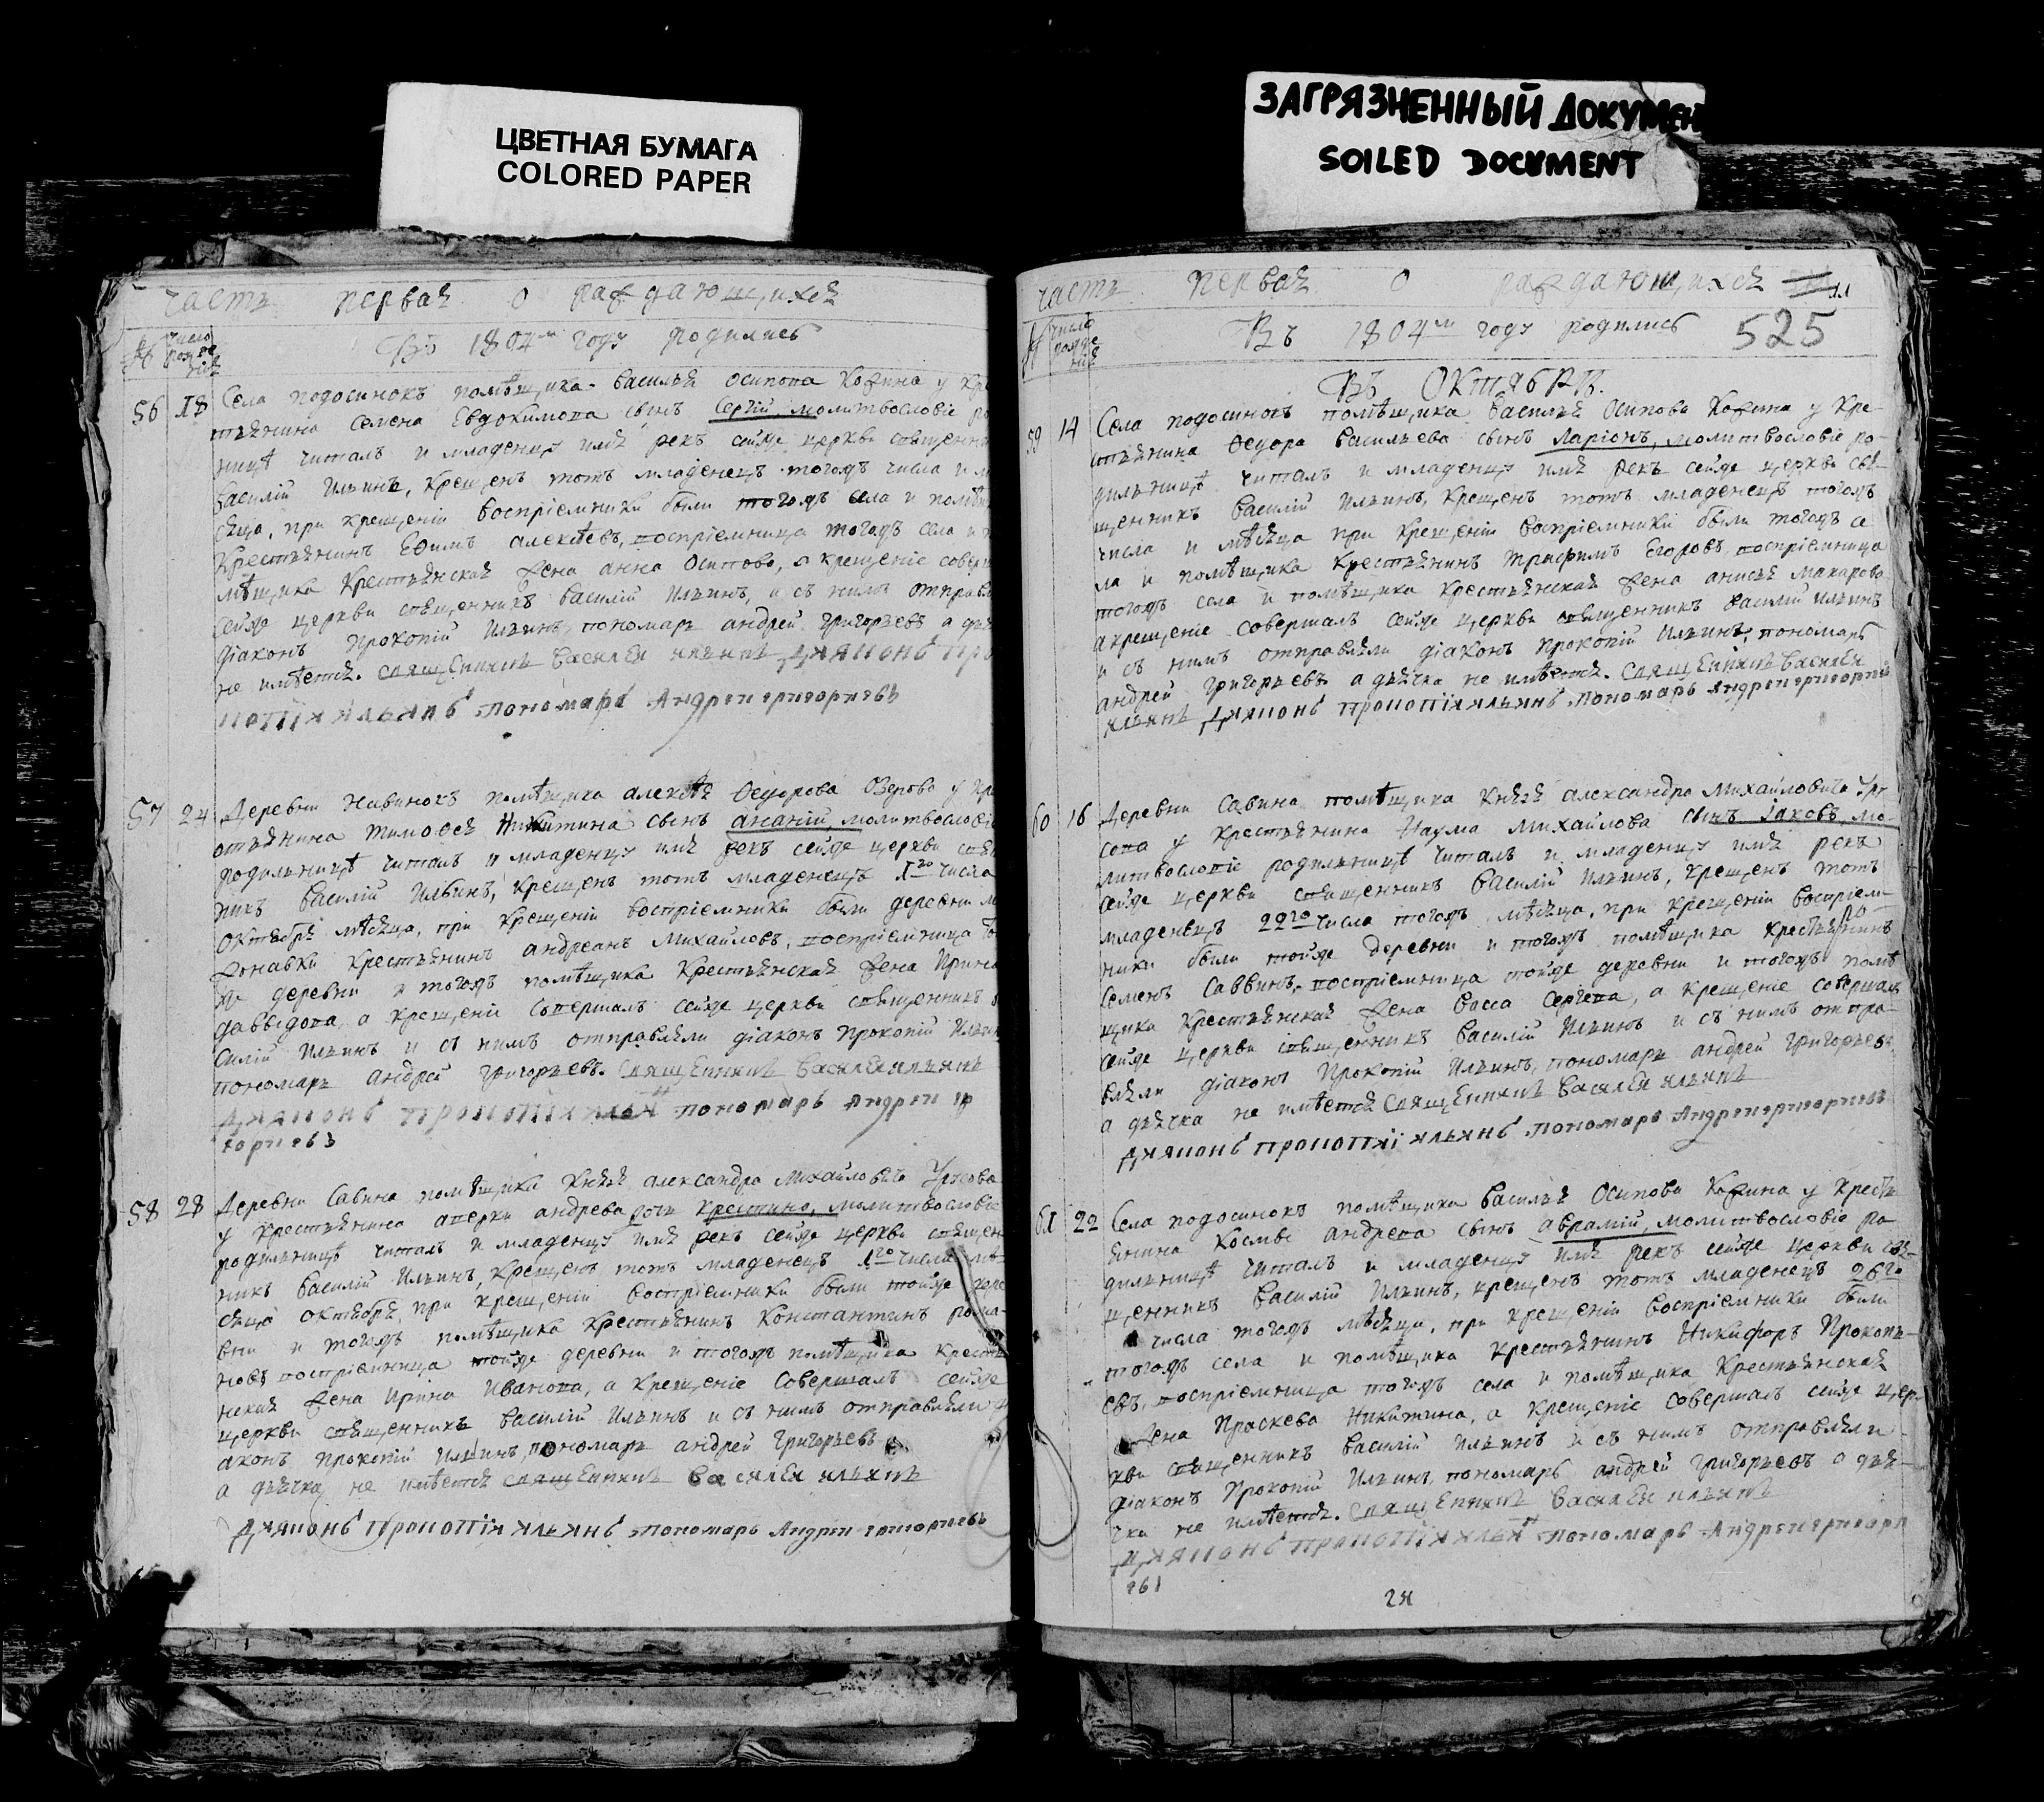 ЦВЕТНАЯ БУМАГА
COLORED PAPER
ЗАГРЯЗНЕННЫЙ ДОКУМЕН
SOILED DOCUMENT
часть первая о раждающихся
№ число рожде нія
Въ 1804м году родились
56 18 Села подосинокъ помѣщика василья осипова Кожина у Кре
стьянина семена Евдокимова сынъ Сергій, молитвословіе ро
ницѣ читалъ и младенцу имя рекъ сейже церкви священни
Василій Ильинъ, крещенъ тотъ младенецъ тогожъ числа и м
сяца, при крещеніи воспріемники были тогожъ села и помѣщ
Крестьянинъ Ефимъ алексѣевъ, воспріемница тогожъ села и п
мѣщика Крестьянская жена анна Осипова, а крещеніе соверш
сейже церкви священникъ василій Ильинъ, и съ нимъ отправл
діаконъ Прокопій Ильинъ, пономарь андрей григорьевъ а дья
не имѣется. священникъ василей ильинъ діаконъ про
копій ильинъ пономарь Андрей григорьевъ
57 24 Деревни Навинокъ помѣщика алексѣя Ѳедорова Озерова у кре
стьянина тимоѳея Никитина сынъ ананій, молитвословіе
родильницѣ читалъ и младенцу имя рекъ сейже церкви свяще
никъ Василій Ильинъ, крещенъ тотъ младенецъ 1го числа
Октября мѣсяца, при крещеніи воспріемники были деревни
Крестьянинъ андреанъ Михайловъ, воспріемница то
же деревни и тогожъ помѣщика Крестьянская жена Ирина
давыдова, а крещеніе совершалъ сейже церкви священникъ в
силій Ильинъ и съ нимъ отправляли діаконъ Прокопій Ильин
пономарь андрей григорьевъ. священникъ василей ильинъ
діаконъ прокопій ильин пономарь Андрей гр
горьевъ
58 28 Деревни Савина помѣщика Князя александра Михайловича Урусова
у крестьянина аверки андрева дочь Крестина, молитвословіе
родильницѣ читалъ и младенцу имя рекъ сейже церкви священ
никъ Василій Ильинъ, крещенъ тотъ младенецъ 1го числа мѣ
сяца октября, при крещеніи воспріемники были тойже дере
вни и тогожъ помѣщика крестьянинъ Константинъ рома
новъ воспріемница тойже деревни и тогожъ помѣщика кресть
нская жена Ирина Иванова, а крещеніе совершалъ сейже
церкви священникъ василій Ильинъ и съ нимъ отправляли
аконъ прокопій Ильинъ, пономарь андрей григорьевъ
а дьячка не имѣется священникъ василей ильинъ
діаконъ прокопій ильинъ пономарь Андрей григорьевъ
часть первая о раждающихся
525
№ число рожде нія
Въ 1804м году родились
Въ Октябрѣ.
59 14 Села подосинокъ помѣщика василья Осипова Кожина у Кре-
стьянина Ѳедора Васильева сынъ Ларіонъ, молитвословіе ро-
дильницѣ читалъ и младенцу имя рекъ сейже церкви свя-
щенникъ василій Ильинъ, крещенъ тотъ младенецъ тогожъ
числа и мѣсяца при крещеніи воспріемники были тогожъ се
ла и помѣщика Крестьянинъ трифимъ Егоровъ, воспріемница
тогожъ села и помѣщика Крестьянская жена анисья Макарова
а крещеніе совершалъ сейже церкви священникъ василій Ильинъ
и съ нимъ отправляли діаконъ прокопій Ильинъ, пономарь
андрей григорьевъ а дьячка не имѣется. священникъ василей
ильинъ діаконъ прокопій ильинъ пономарь Андрей григорьев
60 16 Деревни Савина помѣщика Князя александра Михайловича Уру
сова у крестьянина Наума Михайлова сынъ Іаковъ, мо-
литвословіе родильницѣ читалъ и младенцу имя рекъ
сейже церкви священникъ василій Ильинъ, крещенъ тотъ
младенецъ 22го числа тогожъ мѣсяца, при крещеніи воспріем-
ники были тойже деревни и тогожъ помѣщика крестьянинъ
Семенъ Саввинъ, воспріемница тойже деревни и тогожъ помѣ
щика Крестьянская жена васса Сергева, а крещеніе совершалъ
сейже церкви священникъ василій Ильинъ и съ нимъ отпра-
вляли діаконъ Прокопій Ильинъ, пономарь андрей григорьевъ
а дьячка не имѣется священникъ василей ильинъ
діаконъ прокопій ильинъ пономарь Андрей григорьевъ
61 22 Села подосинокъ помѣщика василья Осипова Кожина у кресть
янина Космы андрева сынъ аврамій, молитвословіе ро
дильницѣ читалъ и младенцу имя рекъ сейже церкви свя-
щенникъ василій Ильинъ, крещенъ тотъ младенецъ 26го
числа тогожъ мѣсяца, при крещеніи воспріемники были
тогожъ села и помѣщика крестьянинъ Никифоръ Прокопь-
евъ, воспріемница тогожъ села и помѣщика Крестьянская
жена Праскева Никитина, а крещеніе совершалъ сейже цер-
кви священникъ василій Ильинъ и съ нимъ отправляли
діаконъ Прокопій Ильинъ, пономарь андрей григорьевъ а дья-
чка не имѣется. священникъ василей ильинъ
діаконъ прокопій ильин пономарь Андрей григорь
евъ